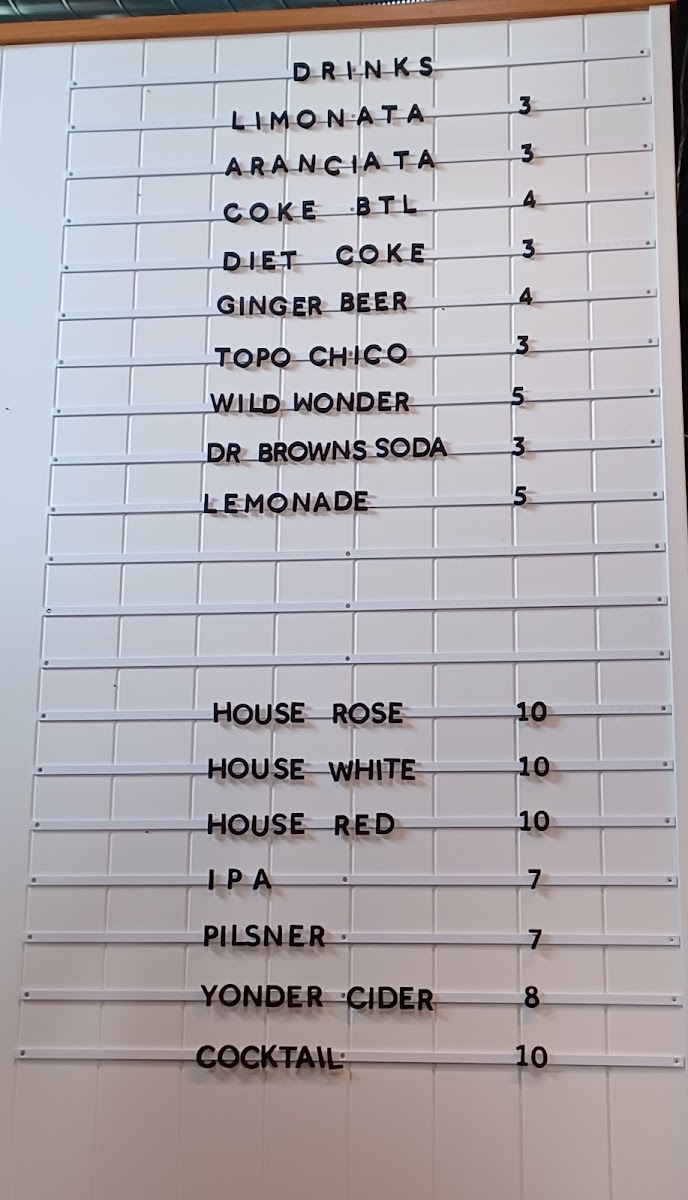 DRINKS
LIMONATA 3
ARANCIATA 3
COKE BTL 4
DIET COKE 3
GINGER BEER 4
TOPO CHICO 3
WILD WONDER 5
DR BROWNS SODA 3
LEMONADE 5
HOUSE ROSE 10
HOUSE WHITE 10
HOUSE RED 10
IPA 7
PILSNER 7
YONDER CIDER 8
COCKTAIL 10